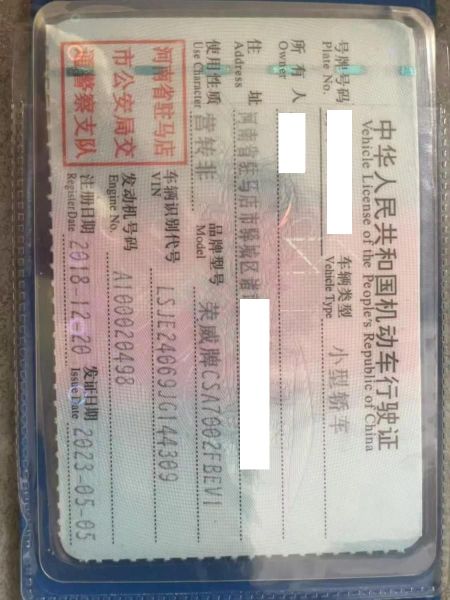 中华人民共和国机动车行驶证
Vehicle License of the People's Republic of China
号牌号码
Plate No.
车辆类型 小型轿车
Vehicle Type
所有人
Owner
住址 河南省驻马店市驿城区
Address
使用性质 营转非
Use Character
品牌型号 荣威牌CSA7002FBEV1
Model
河南省驻马店
市公安局交
通警察支队
车辆识别代号 LSJE24069JG144309
VIN
发动机号码 A100020498
Engine No.
注册日期 2018-12-20
Register Date
发证日期 2023-05-05
Issue Date